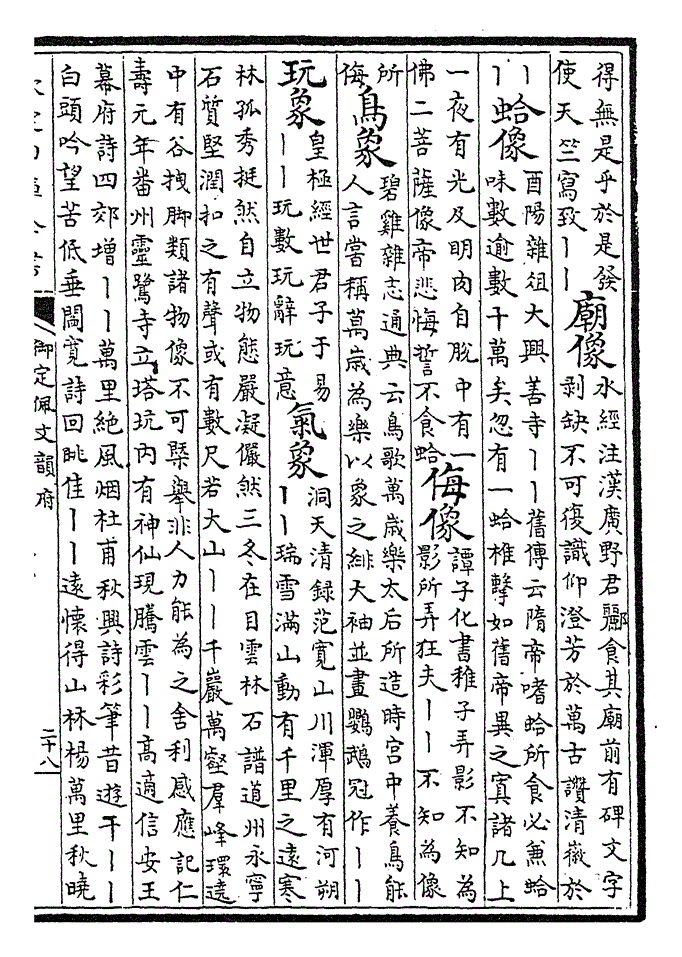 得無是乎於是發
使天竺寫致丨丨
廟像
水經注漢廣野君酈食其廟前有碑文字
剥缺不可復識仰澄芳於萬古讚清徽於
丨
丨
蛤像
酉陽雜俎大興善寺丨丨舊傳云隋帝嗜蛤所食必兼蛤
味數逾數千萬矣忽有一蛤椎擊如舊帝異之寘諸几上
一夜有光及明肉自脫中有一
佛二菩薩像帝悲悔誓不食蛤
侮像
譚子化書稚子弄影不知為
影所弄狂夫丨丨不知為像
所
侮
鳥象
碧雞雜志通典云鳥歌萬歲樂太后所造時宫中養鳥能
人言嘗稱萬歲為樂以象之緋大袖並畫鸚鵡冠作丨丨
玩象
皇極經世君子于易
丨丨玩數玩辭玩意
氣象
洞天清録范寛山川渾厚有河朔
丨丨瑞雪滿山動有千里之遠寒
林孤秀挺然自立物態嚴凝儼然三冬在目雲林石譜道州永寧
石質堅潤扣之有聲或有數尺若大山丨丨千巖萬壑羣峰環遶
中有谷拽脚類諸物像不可槩舉非人力能為之舍利感應記仁
壽元年番州靈鷲寺立塔坑内有神仙現騰雲丨丨高適信安王
幕府詩四郊增丨丨萬里絶風烟杜甫秋興詩彩筆昔遊干丨丨
白頭吟望苦低垂閻寛詩回眺佳丨丨遠懷得山林楊萬里秋曉
御定佩文韻府
二十八